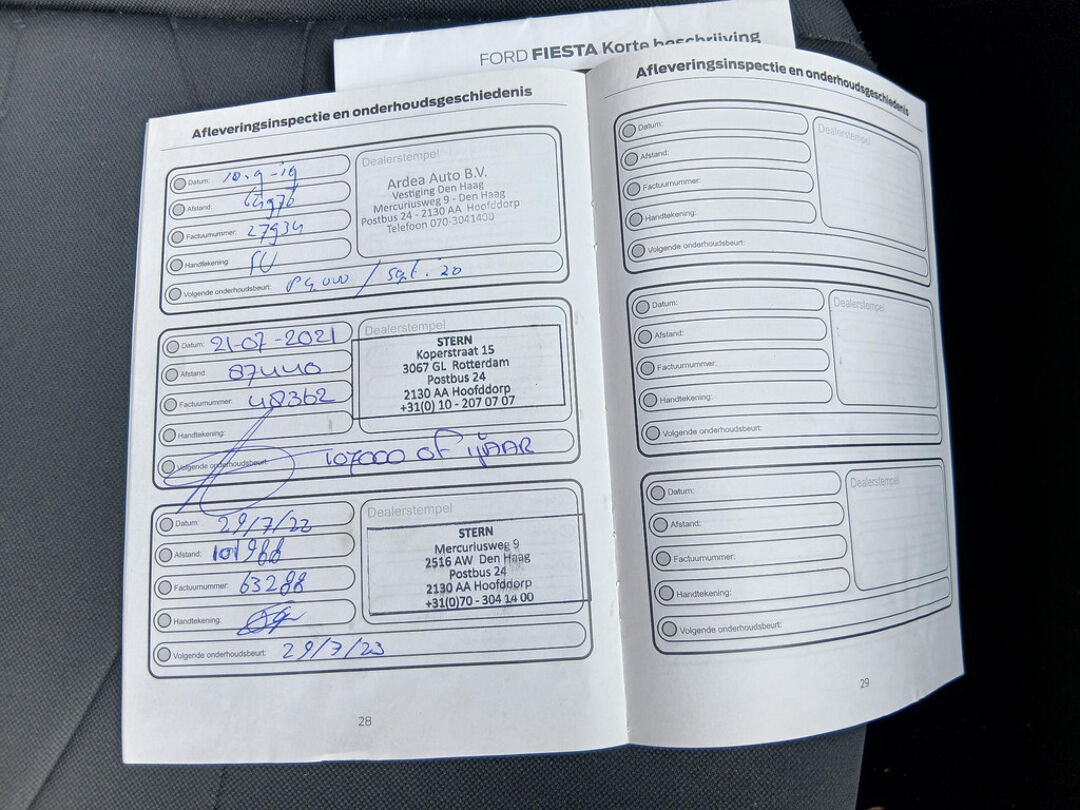 FORD FIESTA Korte beschrijving
Afleveringsinspectie en onderhoudsgeschiedenis
Datum: 10-9-19
Afstand:
Factuurnummer: 27934
Handtekening:
Volgende onderhoudsbeurt: / sept. 20
Dealerstempel
Ardea Auto B.V.
Vestiging Den Haag
Mercuriusweg 9 - Den Haag
Postbus 24 - 2130 AA Hoofddorp
Telefoon 070-3041400
Datum: 21-07-2021
Afstand: 87440
Factuurnummer: 48362
Handtekening:
Volgende onderhoudsbeurt: 107000 of 1jAAR
Dealerstempel
STERN
Koperstraat 15
3067 GL Rotterdam
Postbus 24
2130 AA Hoofddorp
+31(0) 10 - 207 07 07
Datum: 29/7/22
Afstand: 101988
Factuurnummer: 63288
Handtekening:
Volgende onderhoudsbeurt: 29/7/23
Dealerstempel
STERN
Mercuriusweg 9
2516 AW Den Haag
Postbus 24
2130 AA Hoofddorp
+31(0)70 - 304 14 00
28
Afleveringsinspectie en onderhoudsgeschiedenis
Datum:
Afstand:
Factuurnummer:
Handtekening:
Volgende onderhoudsbeurt:
Dealerstempel
Datum:
Afstand:
Factuurnummer:
Handtekening:
Volgende onderhoudsbeurt:
Dealerstempel
Datum:
Afstand:
Factuurnummer:
Handtekening:
Volgende onderhoudsbeurt:
Dealerstempel
29